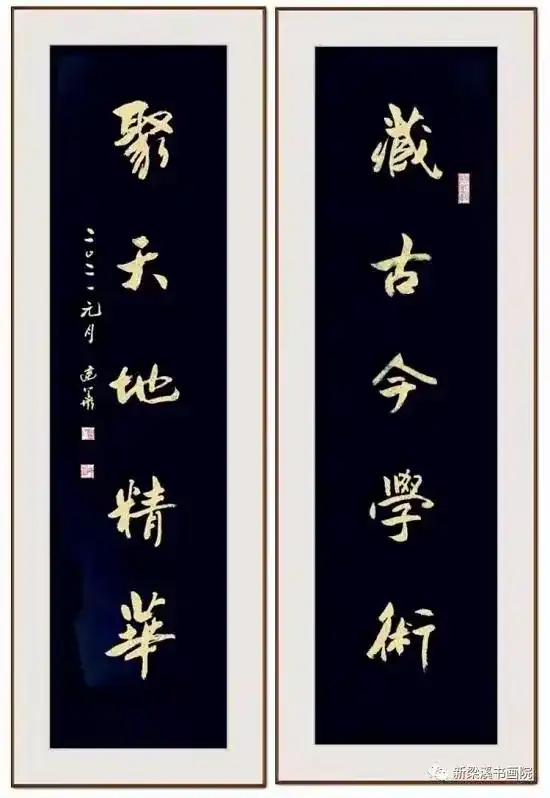 藏古今學術
聚天地精華
二〇二一元月 建華
新梁溪书画院